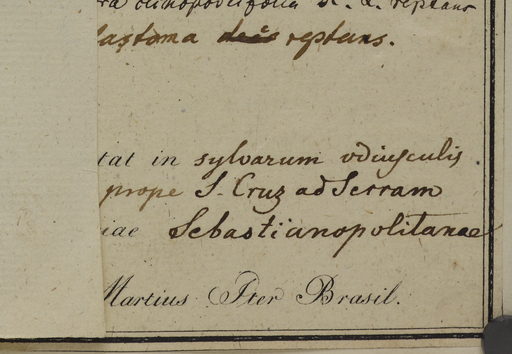 clinopodifolia β. L. reptans
lastoma reptans.
tat in sylvarum udiusculis.
prope S. Cruz ad Serram
iae Sebastianopolitanae
Martius Iter Brasil.